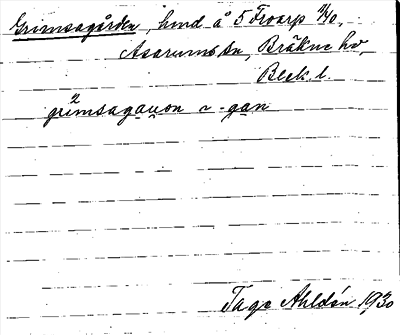 Grimsagården, hmd å 5 Froarp 7/40,
Asarums sn, Bräkne hd,
Blek. l.
grimsagaụon ~ -gạn
Tage Ahldén 1930